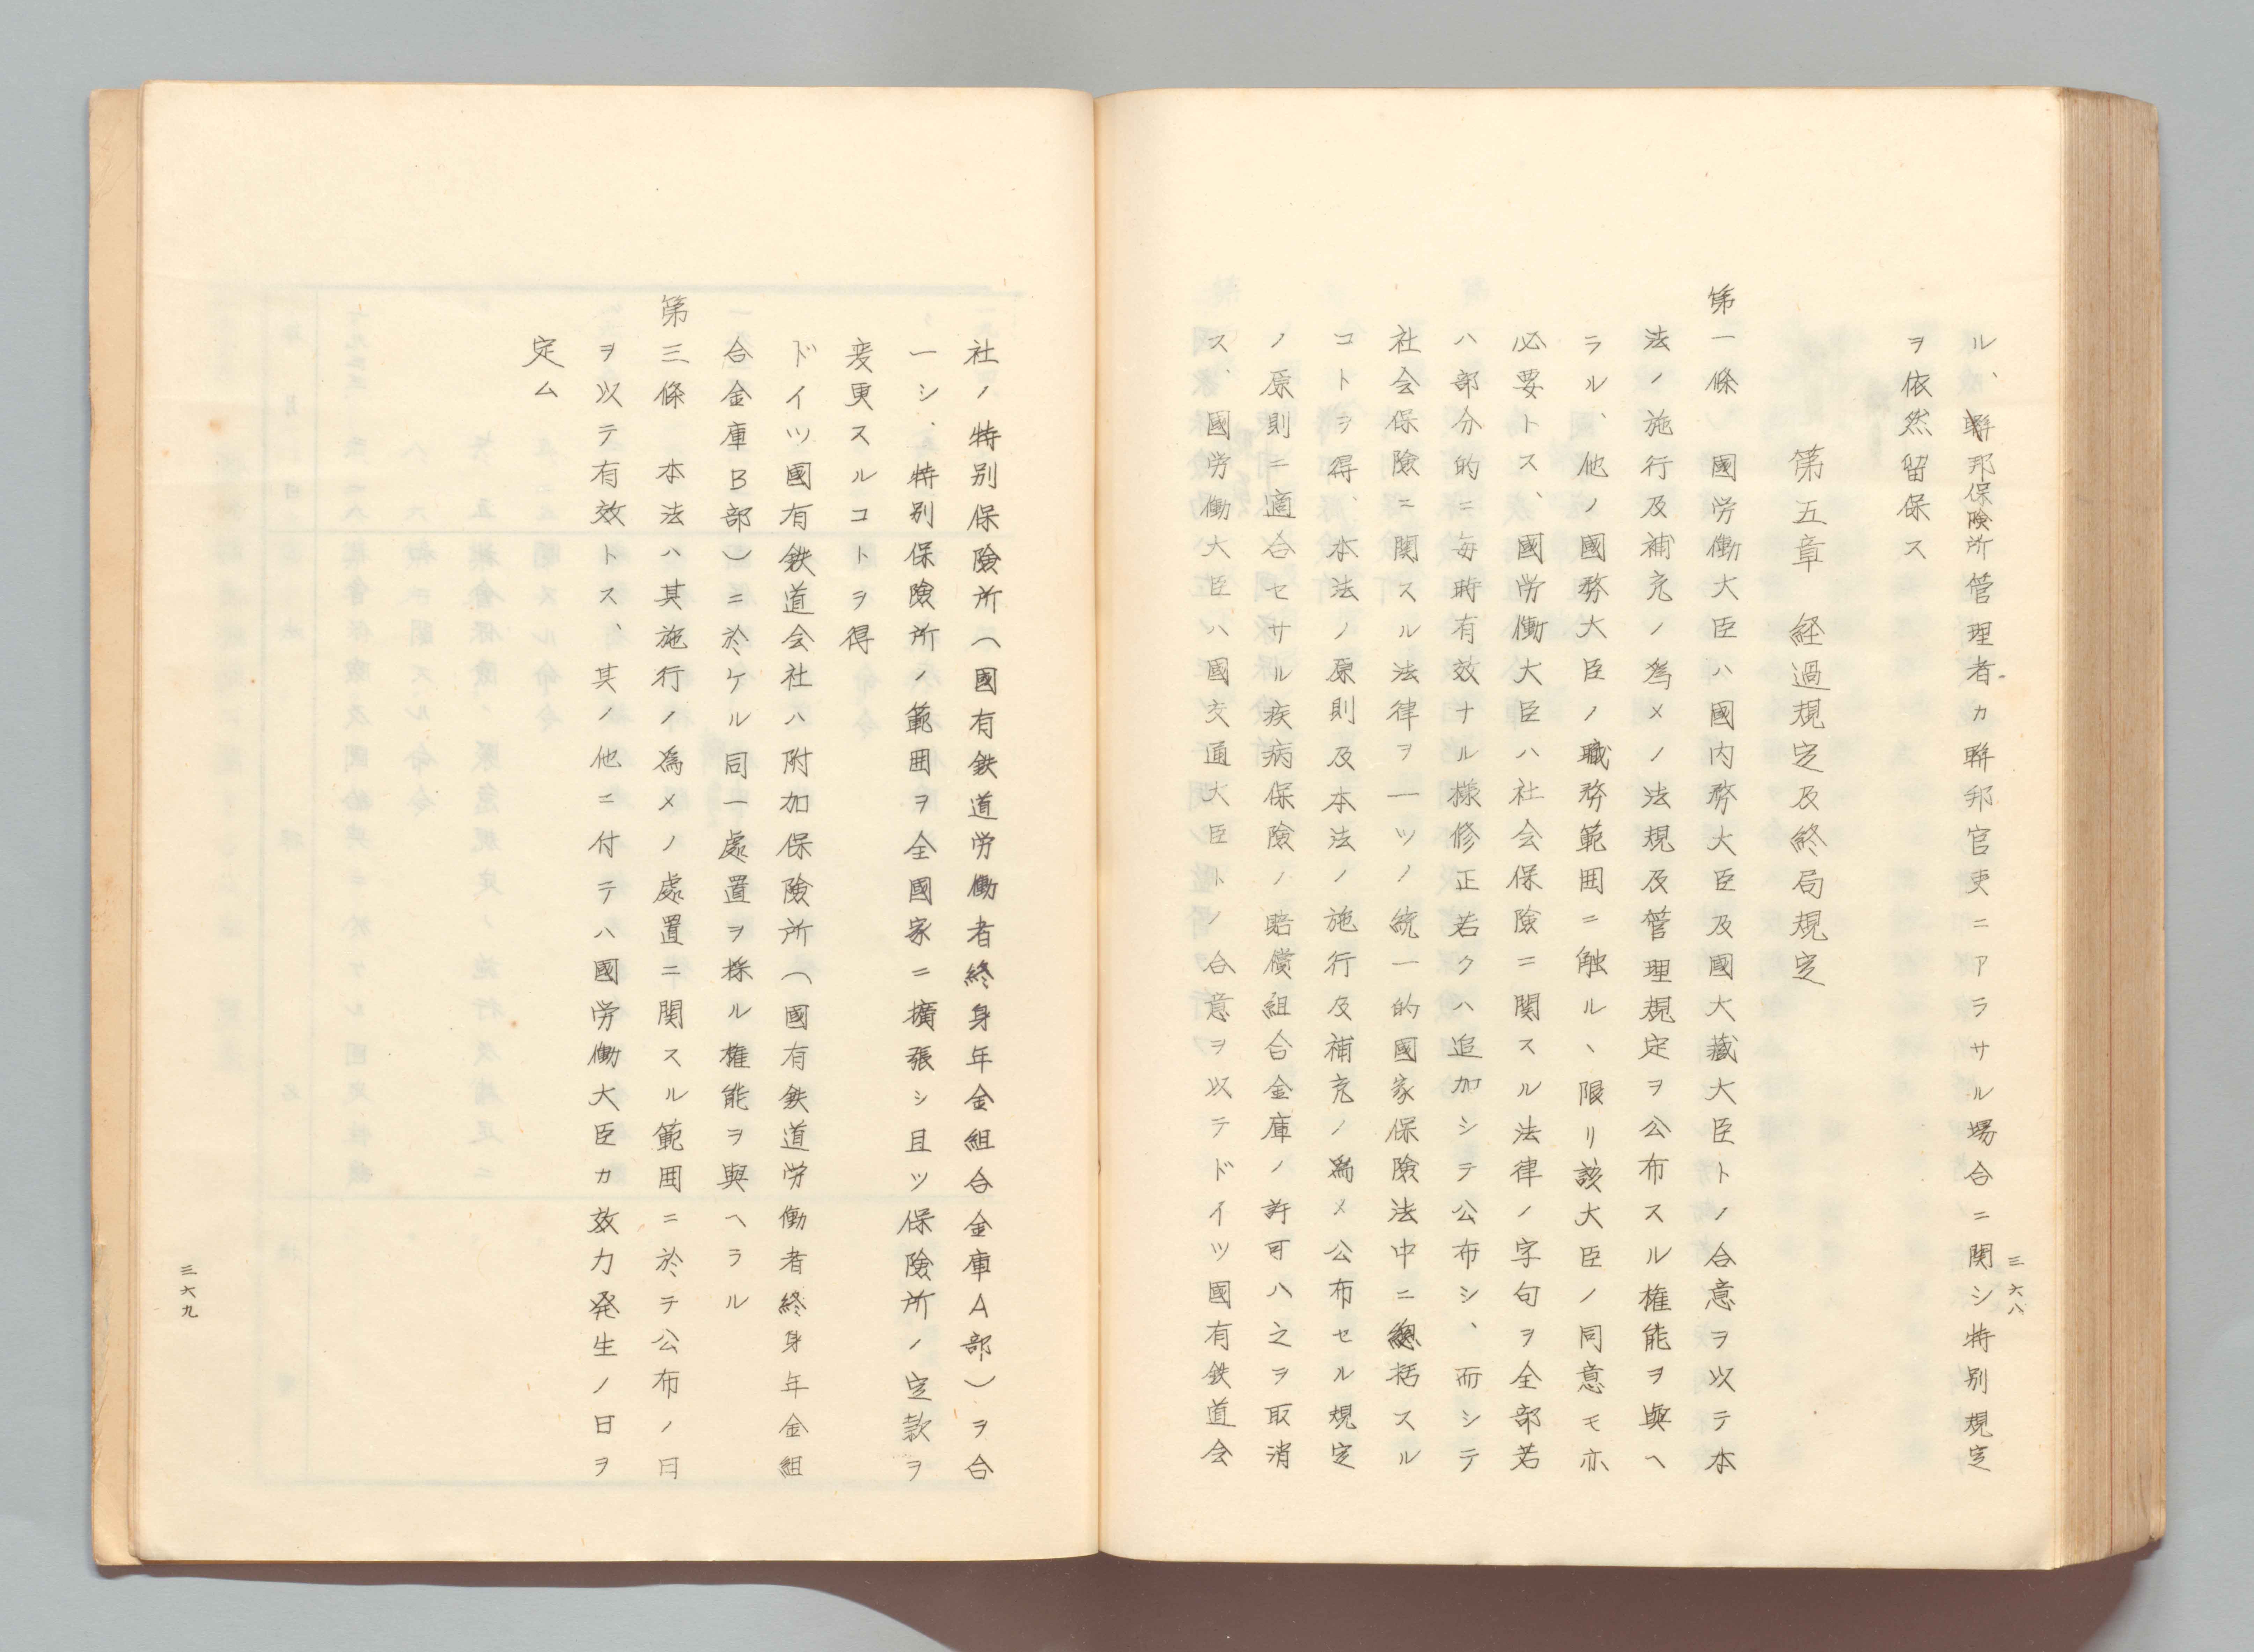 ル、聯邦保険所管理者カ聯邦官吏ニアラサル場合ニ関シ特別規定
ヲ依然留保ス
第五章 経過規定及終局規定
第一條 國労働大臣ハ國内務大臣及國大藏大臣トノ合意ヲ以テ本
法ノ施行及補充ノ爲メノ法規及管理規定ヲ公布スル権能ヲ與ヘ
ラル、他ノ國務大臣ノ職務範囲ニ触ルヽ限リ該大臣ノ同意モ亦
必要トス、國労働大臣ハ社会保險ニ関スル法律ノ字句ヲ全部若
ハ部分的ニ毎時有效ナル様修正若クハ追加シテ公布シ、而シテ
社会保險ニ関スル法律ヲ一ツノ統一的國家保險法中ニ總括スル
コトヲ得、本法ノ原則及本法ノ施行及補充ノ爲メ公布セル規定
ノ原則ニ適合セサル疾病保險ノ賠償組合金庫ノ許可ハ之ヲ取消
ス、國労働大臣ハ國交通大臣トノ合意ヲ以テドイツ國有鉄道会
三六八
社ノ特別保險所（國有鉄道労働者終身年金組合金庫A部）ヲ合
一シ、特別保險所ノ範囲ヲ全國家ニ擴張シ且ツ保險所ノ定款ヲ
変更スルコトヲ得
ドイツ國有鉄道会社ハ附加保險所（國有鉄道労働者終身年金組
合金庫B部）ニ於ケル同一處置ヲ採ル権能ヲ與ヘラル
第三條 本法ハ其施行ノ爲メノ處置ニ関スル範囲ニ於テ公布ノ日
ヲ以テ有效トス、其ノ他ニ付テハ國労働大臣カ效力発生ノ日ヲ
定ム
三六九